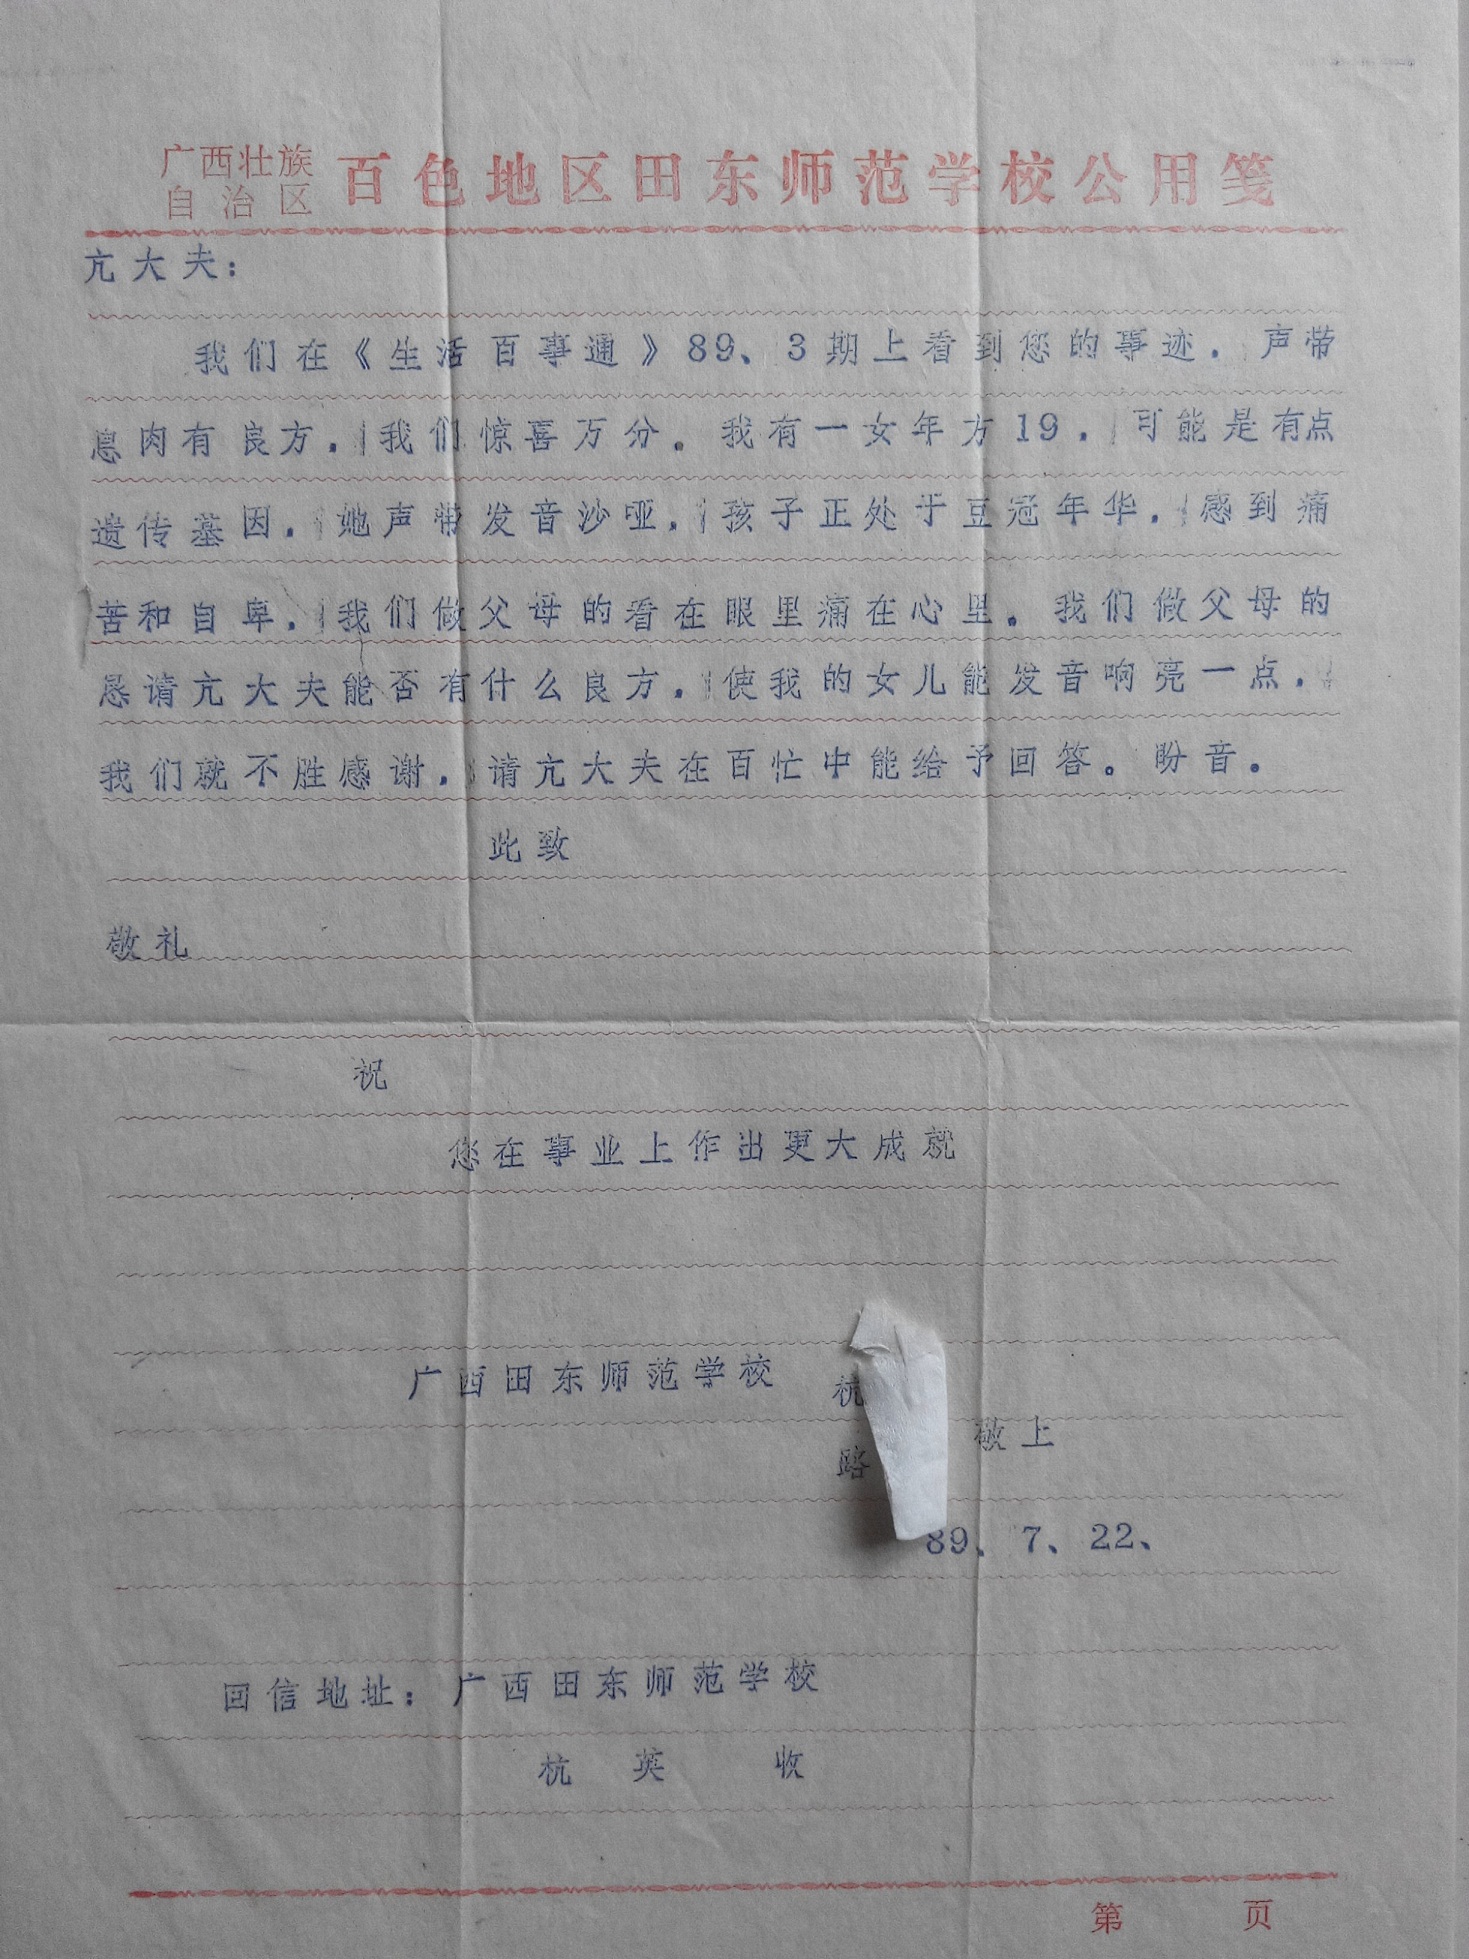 广西壮族
自治区
百色地区田东师范学校公用笺
亢大夫：
我们在《生活百事通》89、3期上看到您的事迹．声带
息肉有良方．我们惊喜万分。我有一女年方19．可能是有点
遗传基因．她声带发音沙哑．孩子正处于豆冠年华．感到痛
苦和自卑．我们做父母的看在眼里痛在心里。我们做父母的
恳请亢大夫能否有什么良方．使我的女儿能发音响亮一点．
我们就不胜感谢．请亢大夫在百忙中能给予回答。盼音。
此致
敬礼
祝
您在事业上作出更大成就
广西田东师范学校 杭
敬上
路
89、7、22、
回信地址：广西田东师范学校
杭英 收
第 页